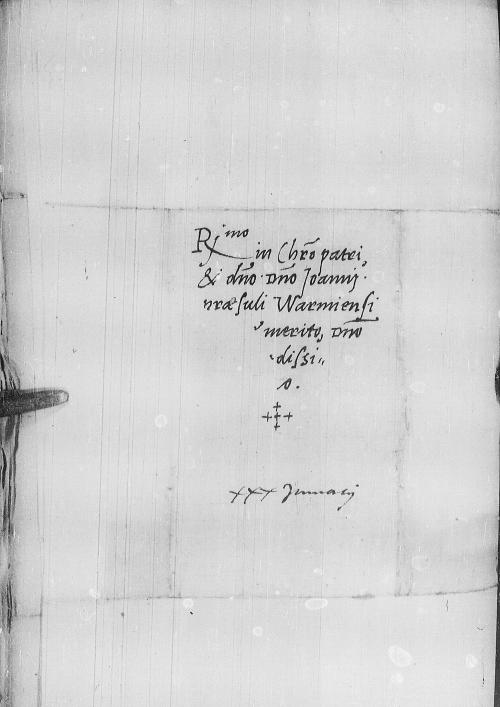 R.mo in Chr̃o patri,
& dño. Dño Joannj.
præsuli Warmiensi
merito, Dño
dissi„
o.
xxx Januarij